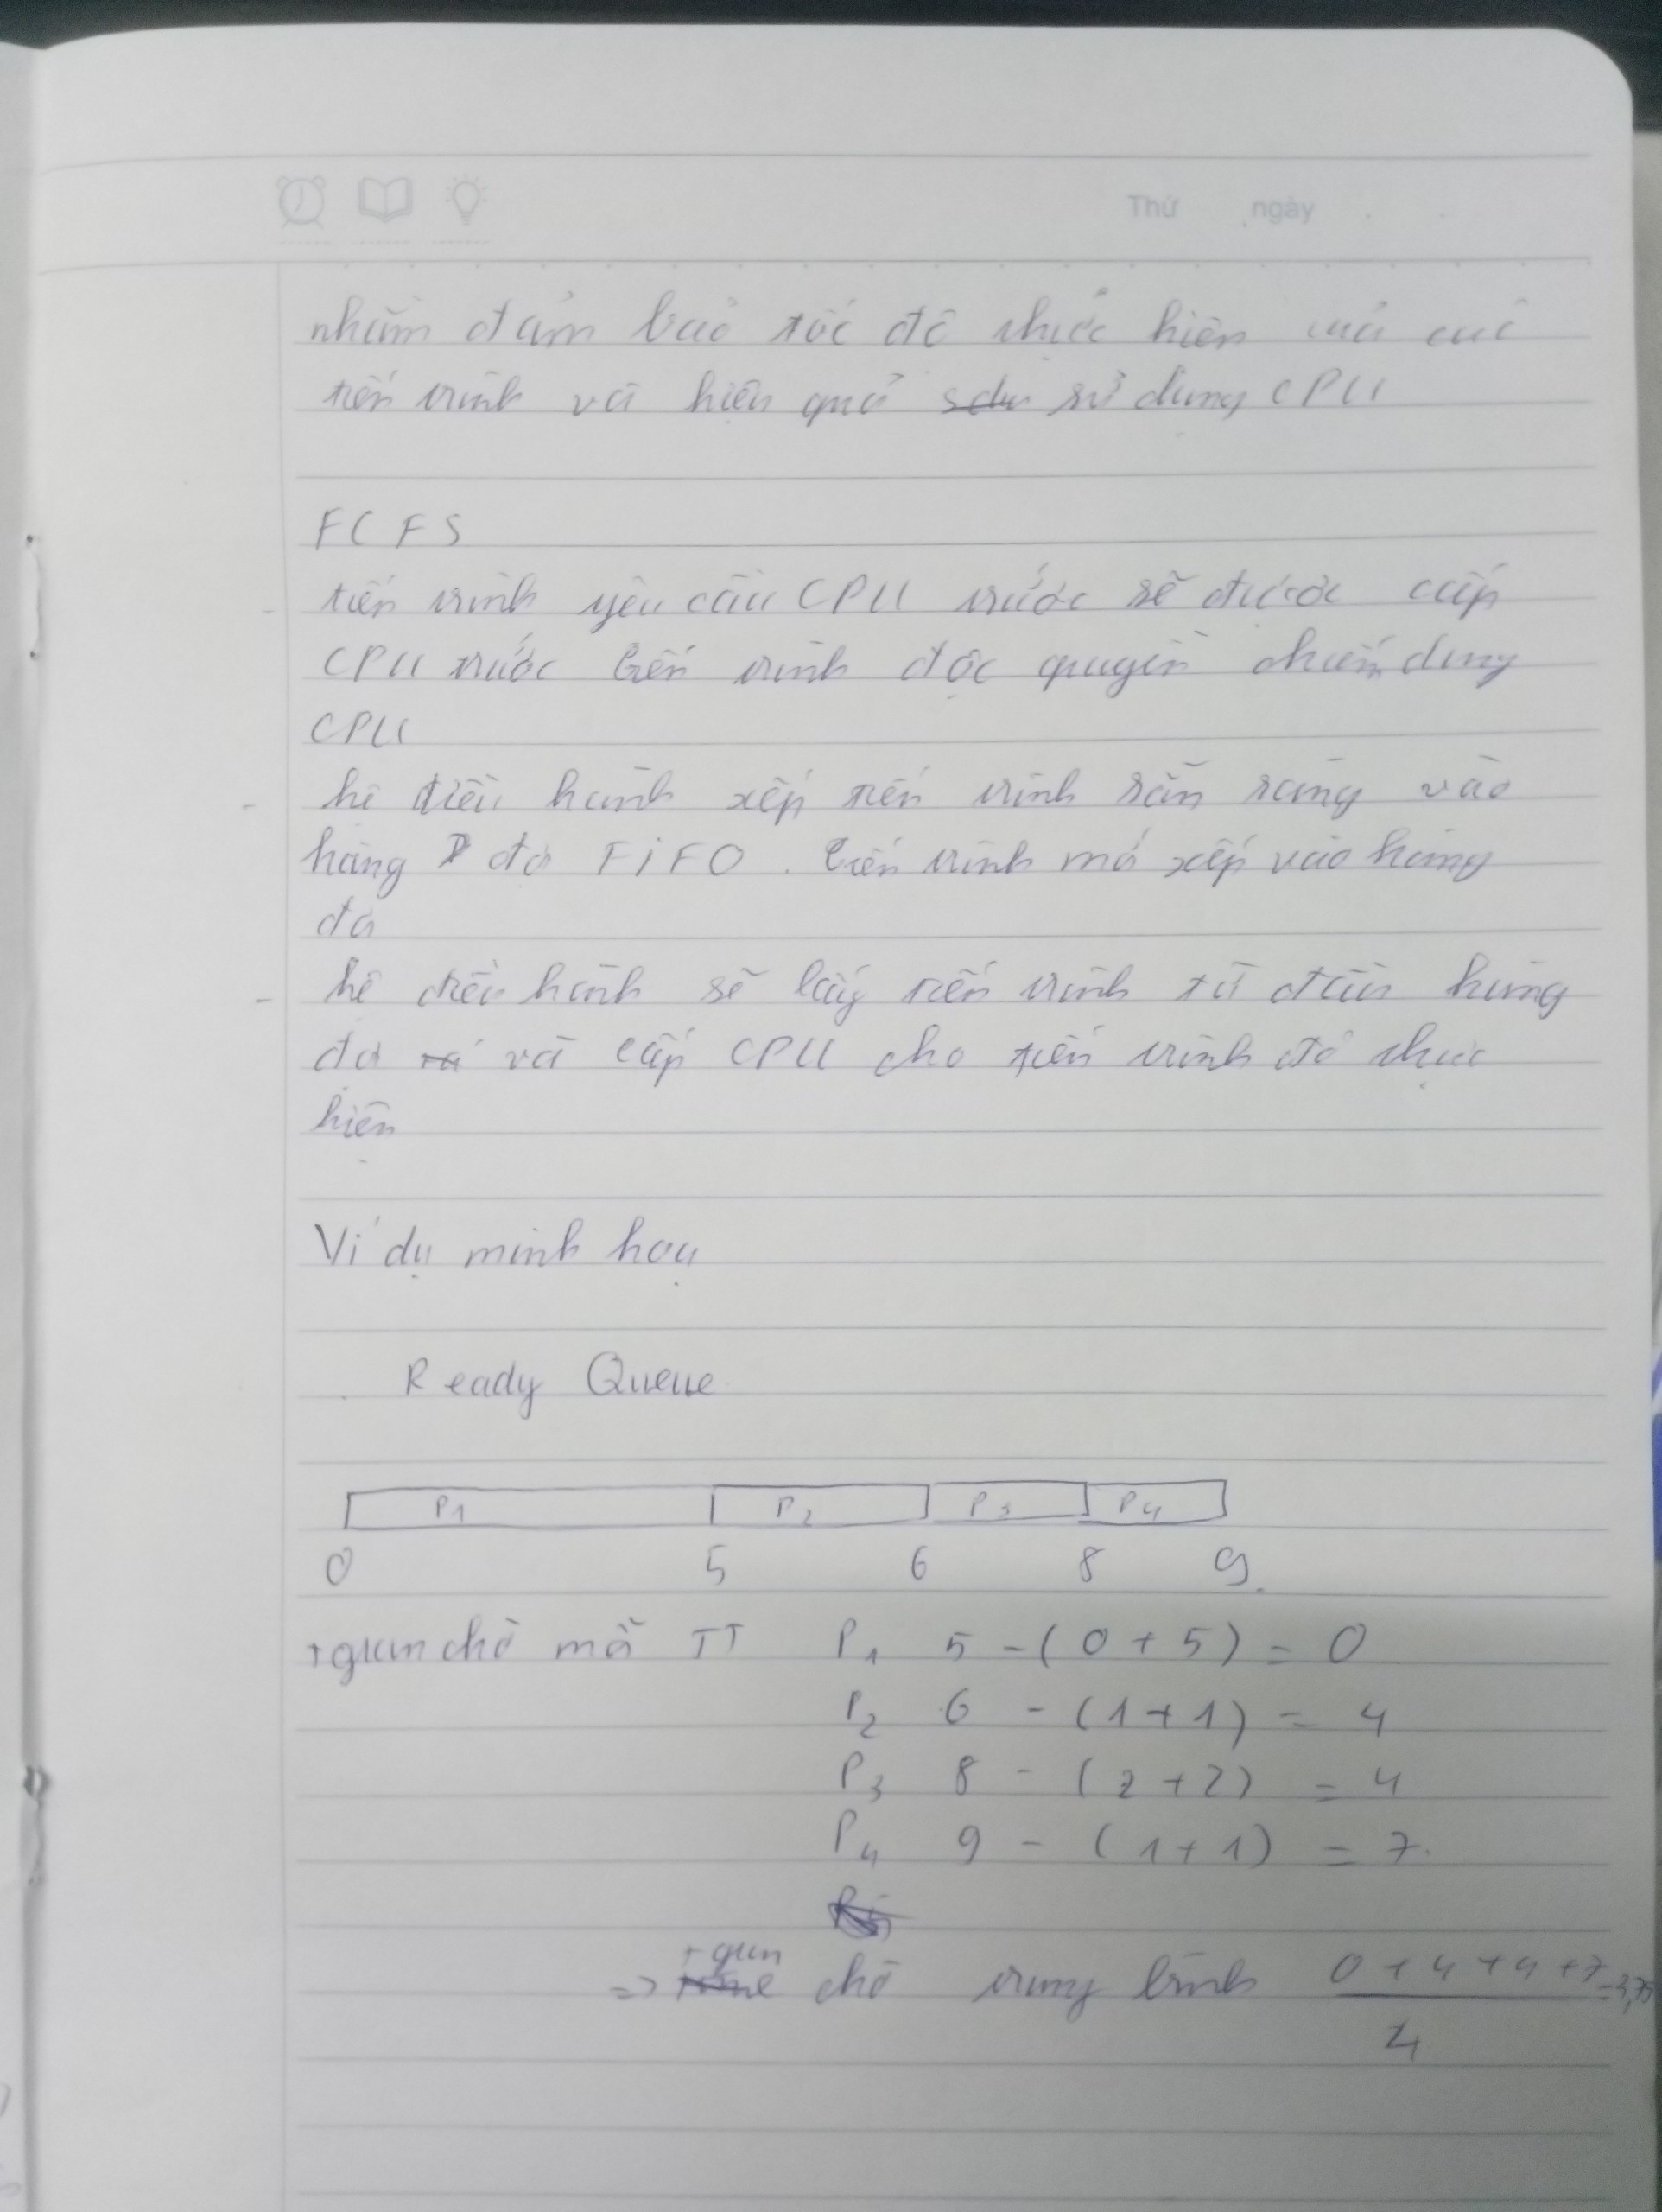 Thứ ngày
nhằm đảm bảo tốc độ thực hiện của các
tiến trình và hiệu quả sử dụng CPU
FCFS
- tiến trình yêu cầu CPU trước sẽ được cấp
CPU trước tiến trình độc quyền chiếm dụng
CPU
- hệ điều hành xếp tiến trình sẵn sàng vào
hàng đợi FiFO. tiến trình mới xếp vào hàng
đợi
- hệ điều hành sẽ lấy tiến trình từ đầu hàng
đợi và cấp CPU cho tiến trình đó thực
hiện
Ví dụ minh hoạ
Ready Queue
P1 P2 P3 P4
0 5 6 8 9
tgian chờ mỗi TT P1 5 - (0 + 5) = 0
P2 6 - (1 + 1) = 4
P3 8 - (2 + 2) = 4
P4 9 - (1 + 1) = 7
=> tgian chờ trung bình 0 + 4 + 4 + 7 = 3,75
4